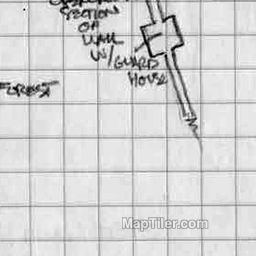 SECTION
OF
WALL
W/ GUARD
HOUSE
FOREST
MapTiler.com